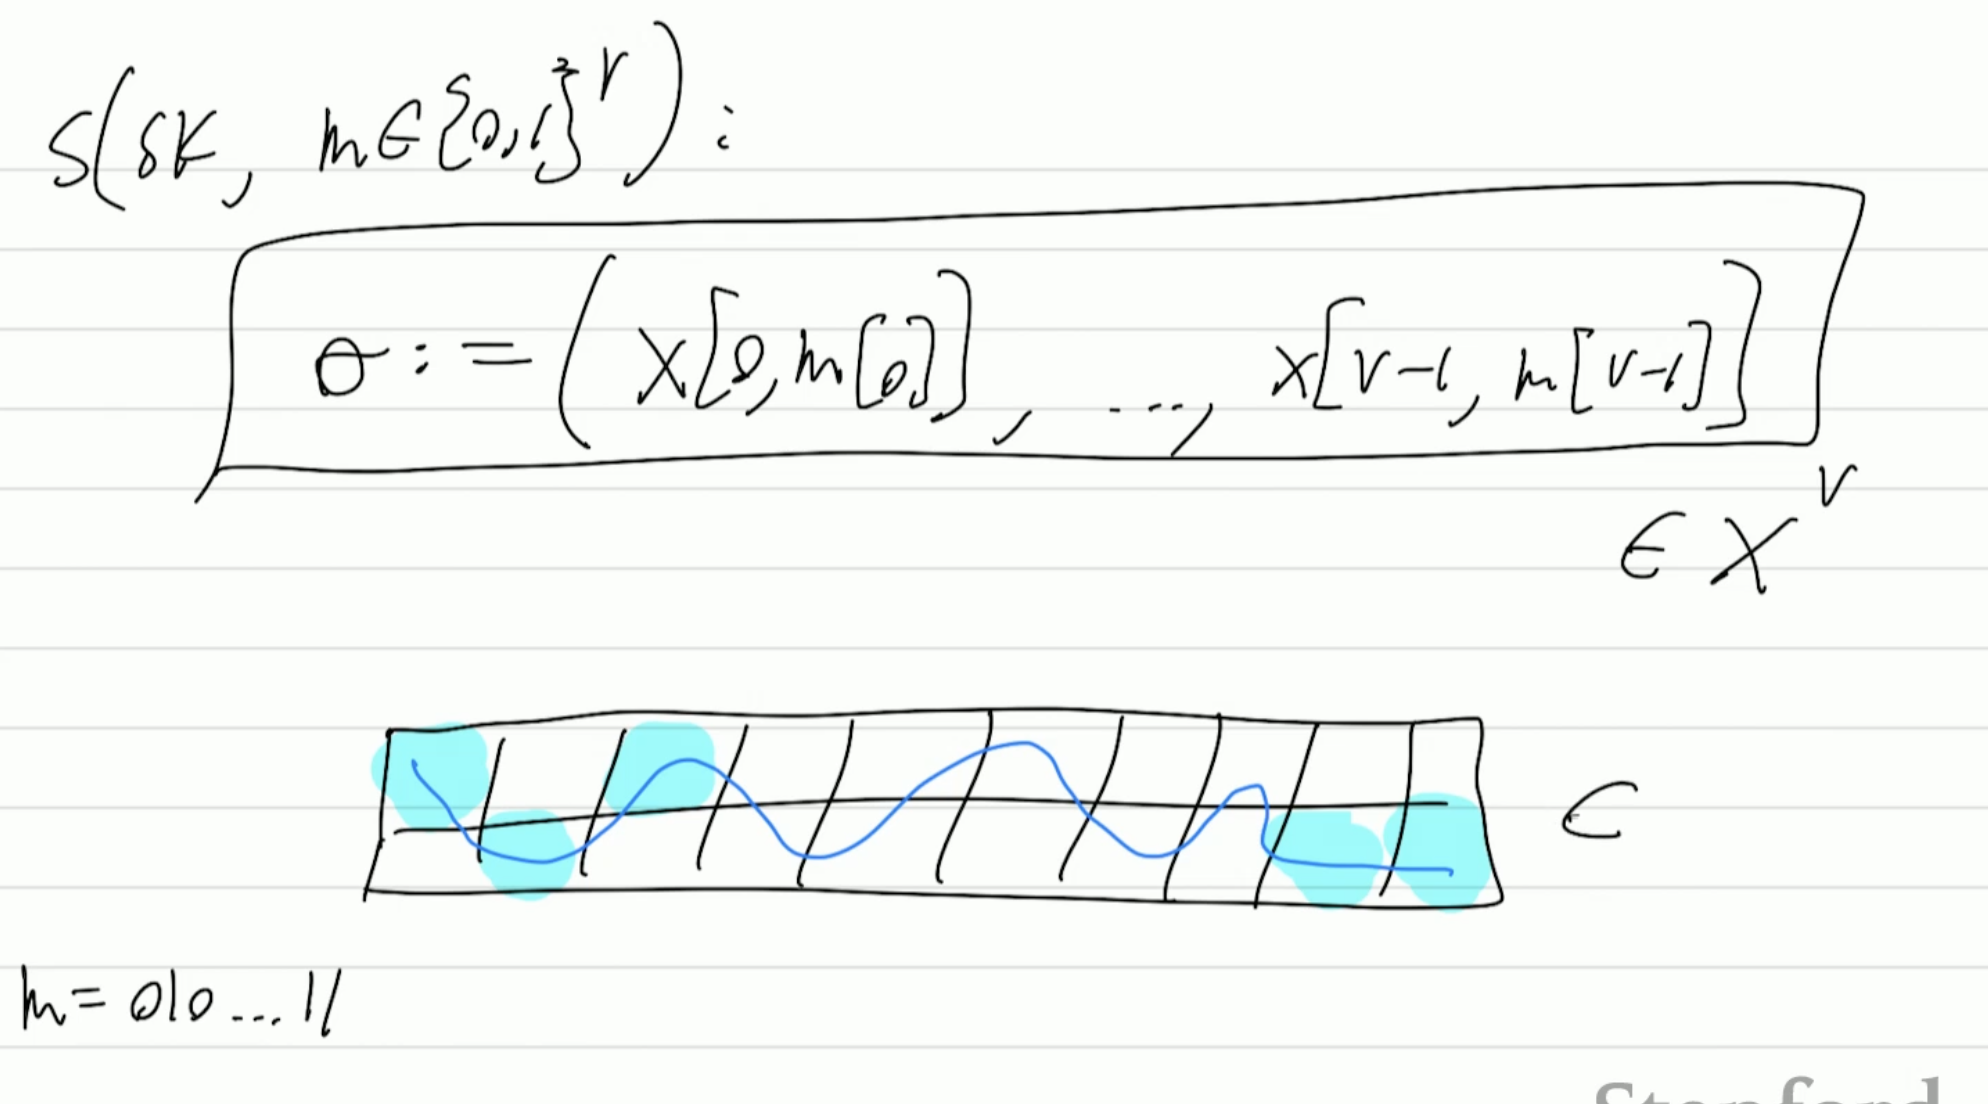 S(SK, m∈{0,1}^v):
σ := (X[0,m[0]], ..., X[v-1, m[v-1]]
∈ X^v
∈
m = 010...11
Stanford